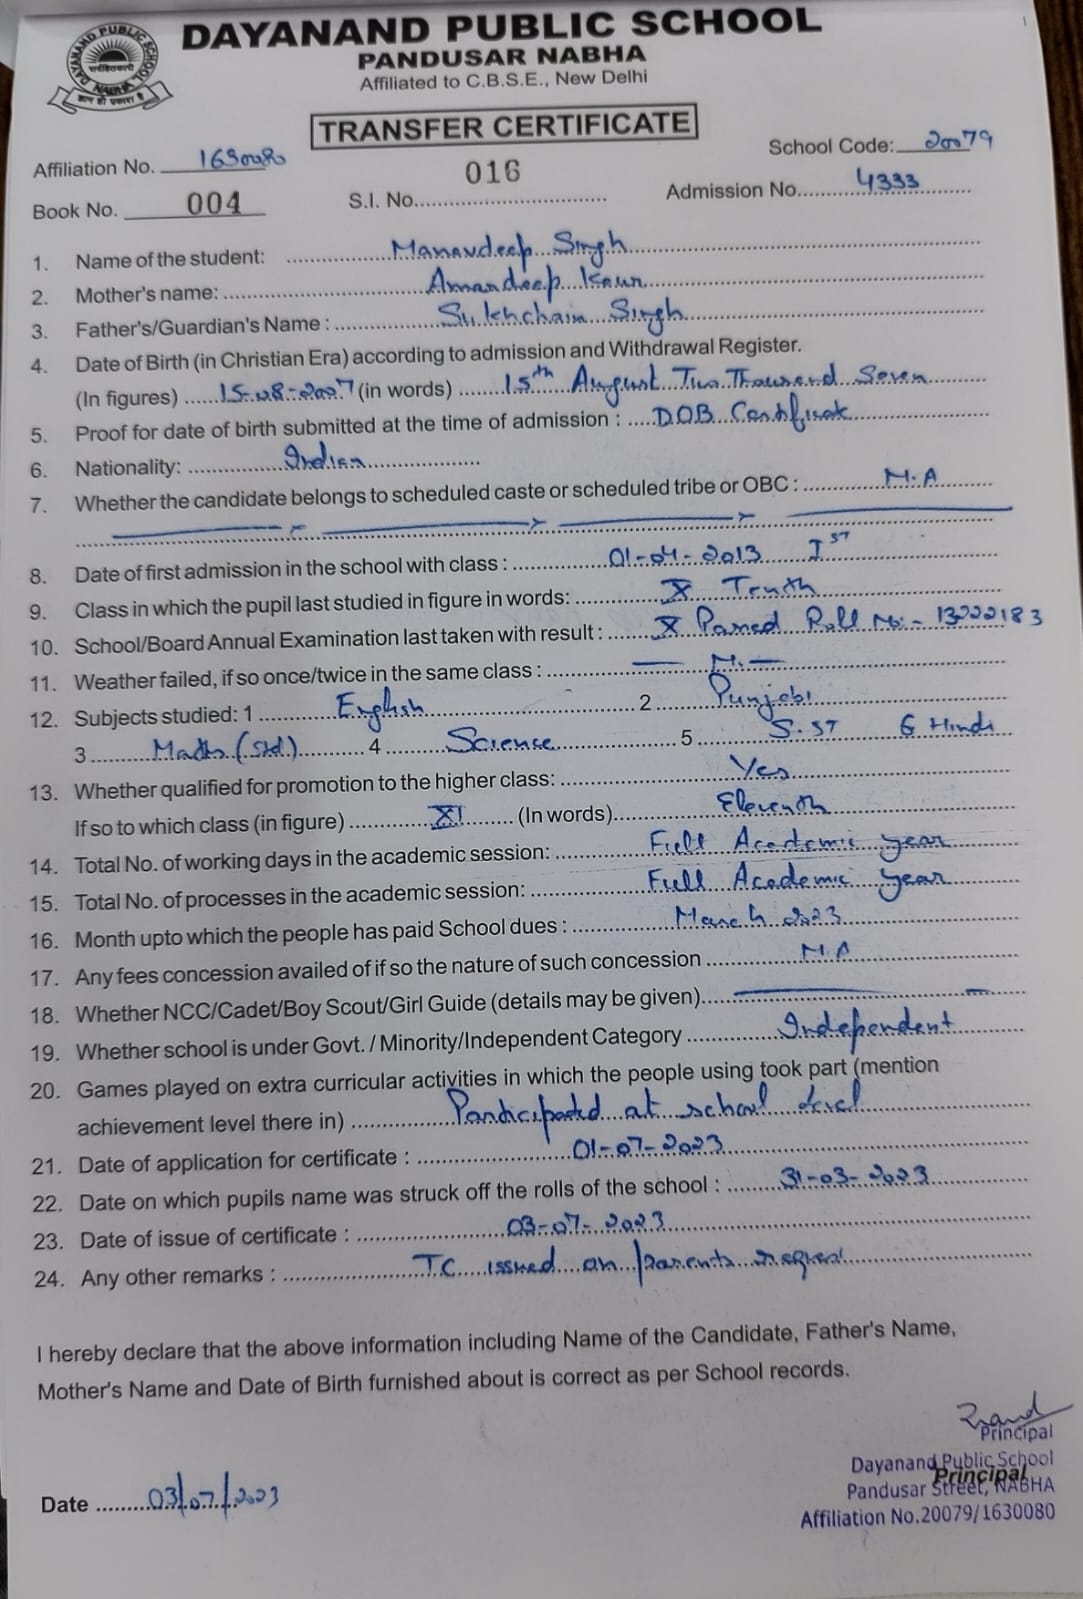 DAYANAND PUBLIC SCHOOL
PANDUSAR NABHA
Affiliated to C.B.S.E., New Delhi
DAYANAND PUBLIC SCHOOL
NABHA
TRANSFER CERTIFICATE
Affiliation No. 1630080 School Code: 20079
Book No. 004 S.I. No. 016 Admission No. 4333
1. Name of the student: Manavdeep Singh
2. Mother's name: Amandeep Kaur
3. Father's/Guardian's Name : Sukhchain Singh
4. Date of Birth (in Christian Era) according to admission and Withdrawal Register.
(In figures) 15-08-2007 (in words) 15th August Two Thousand Seven
5. Proof for date of birth submitted at the time of admission : DOB Certificate
6. Nationality: Indian
7. Whether the candidate belongs to scheduled caste or scheduled tribe or OBC : N.A
8. Date of first admission in the school with class : 01-04-2013 Ist
9. Class in which the pupil last studied in figure in words: X Tenth
10. School/Board Annual Examination last taken with result : X Passed Roll No:- 13222183
11. Weather failed, if so once/twice in the same class : — N. —
12. Subjects studied: 1 English 2 Punjabi
3 Maths (Std) 4 Science 5 S.ST & Hindi
13. Whether qualified for promotion to the higher class: Yes
If so to which class (in figure) XI (In words) Eleventh
14. Total No. of working days in the academic session: Full Academic year
15. Total No. of processes in the academic session: Full Academic year
16. Month upto which the people has paid School dues : March 2023
17. Any fees concession availed of if so the nature of such concession N.A
18. Whether NCC/Cadet/Boy Scout/Girl Guide (details may be given)
19. Whether school is under Govt. / Minority/Independent Category Independent
20. Games played on extra curricular activities in which the people using took part (mention
achievement level there in) Participated at school level
21. Date of application for certificate : 01-07-2023
22. Date on which pupils name was struck off the rolls of the school : 31-03-2023
23. Date of issue of certificate : 03-07-2023
24. Any other remarks : TC issued on parents request
I hereby declare that the above information including Name of the Candidate, Father's Name,
Mother's Name and Date of Birth furnished about is correct as per School records.
Principal
Dayanand Public School
Principal
Pandusar Street, NABHA
Affiliation No.20079/1630080
Date 03/07/2023